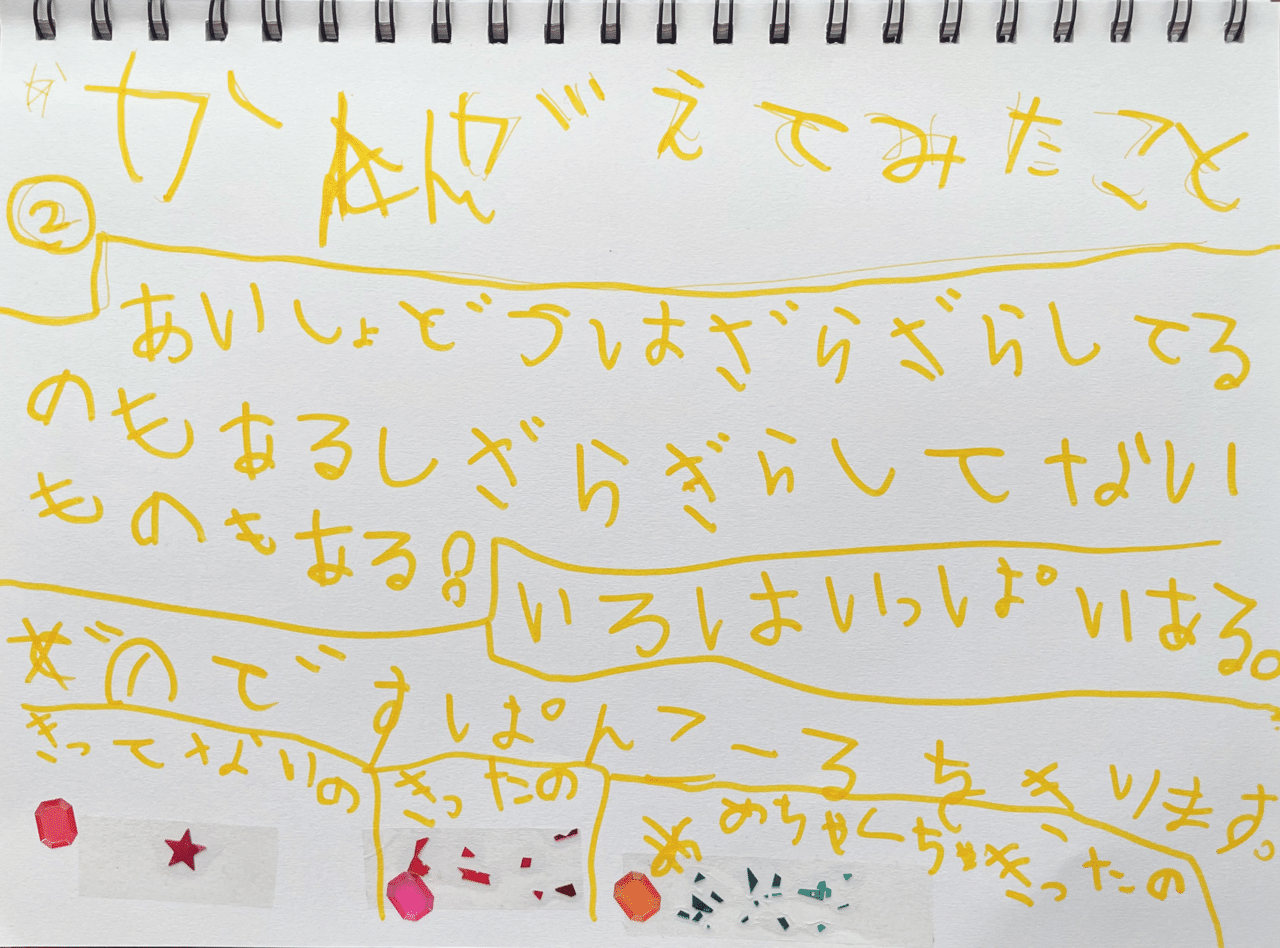 かんがえてみたこと
②
あいしょどうはざらざらしてる
のもあるしざらざらしてない
ものもある!
いろはいっぱいある。
なのですぱんこーるをきります。
きってないの
きったの
めちゃくちゃきったの